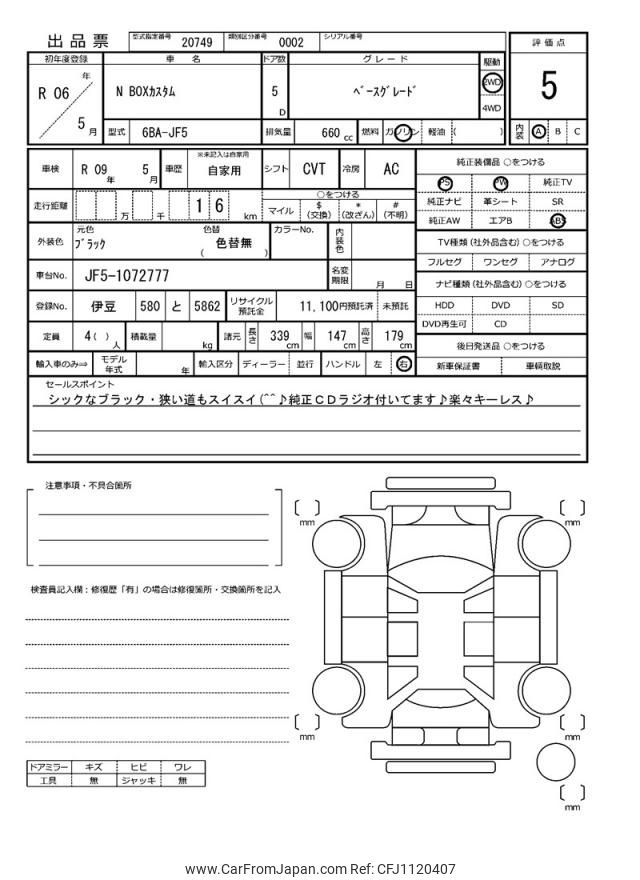 出品票 型式指定番号 20749 類別区分番号 0002 シリアル番号
評価点
初年度登録 車名 ドア数 グレード 駆動
R 06 年 5 月 N BOXカスタム 5 D ベースグレード 2WD 4WD
5
型式 6BA-JF5 排気量 660 cc 燃料 ガソリン 軽油 ( )
内装 A B C
車検 R 09 年 5 月 車歴 ※未記入は自家用 自家用 シフト CVT 冷房 AC
走行距離 万 千 1 6 km ○をつける マイル $ (交換) * (改ざん) # (不明)
外装色 元色 ブラック 色替 色替無 ( ) カラーNo. 内装色
車台No. JF5-1072777 名変期限 月 日
登録No. 伊豆 580 と 5862 リサイクル預託金 11,100円預託済 未預託
定員 4( ) 人 積載量 kg 諸元 長さ 339 cm 幅 147 cm 高さ 179 cm
輸入車のみ⇒ モデル年式 年 輸入区分 ディーラー 並行 ハンドル 左 右
純正装備品 ○をつける
PS PW 純正TV
純正ナビ 革シート SR
純正AW エアB ABS
TV種類 (社外品含む) ○をつける
フルセグ ワンセグ アナログ
ナビ種類 (社外品含む) ○をつける
HDD DVD SD
DVD再生可 CD
後日発送品 ○をつける
新車保証書 車輌取説
セールスポイント
シックなブラック・狭い道もスイスイ(^^♪純正CDラジオ付いてます♪楽々キーレス♪
注意事項・不具合箇所
検査員記入欄：修復歴「有」の場合は修復箇所・交換箇所を記入
mm
mm
mm
mm
mm
ドアミラー キズ ヒビ ワレ
工具 無 ジャッキ 無
www.CarFromJapan.com Ref: CFJ1120407